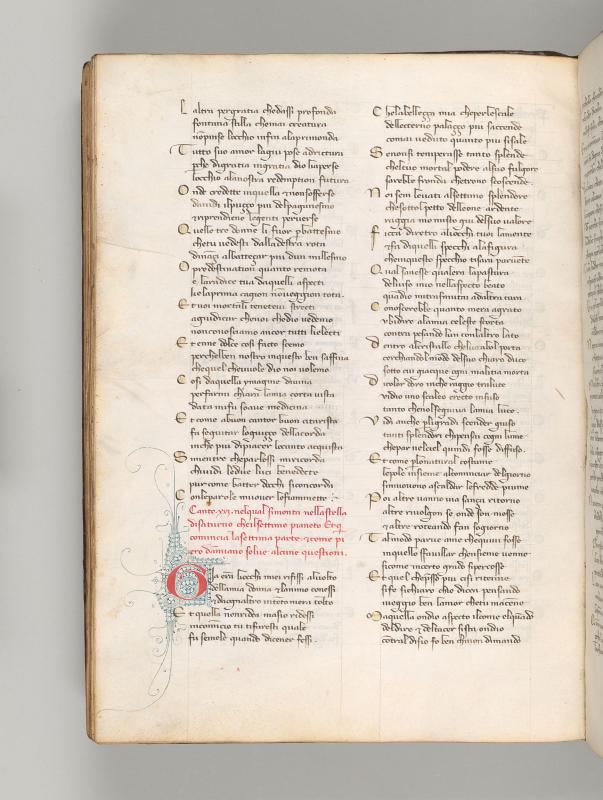 L altra per gratia che dassi profonda
fontana stilla che mai creatura
non pinse locchio infin alaprimonda
T utto suo amor lagiu pose adrictura
p che digratia ingratia dio liaperse
locchio alanostra redemption futura
O nde credette inquella & non sofferse
daindi ilpuçço piu delpaganesmo
& riprendieno legenti perverse
Q uelle tre donne li fuor pbattesmo
che tu vedesti dalla destra rota
dinãçi albatteççar piu dun millesmo
O predestination quanto remota
e laradice tua daquelli aspecti
che laprima cagion nõ veggion tota
E t voi mortali tenetevi strecti
agiudicar che noi che dio vedemo
non conosciamo ancor tutti lielecti
E t enne dolce cosi facto scemo
perchelben nostro inquesto ben saffina
che quel che vuole dio noi volemo
C osi daquella ymagine divina
per farmi chiara lamia corta vista
data mi fu soave medicina
E t come abuon cantor buon citarista
fa seguitar loguiçço dellacorda
inche piu dipiacer locanto acquista
S i mentre cheparlo si mi ricorda
chio vidi ledue luci benedette
pur come batter docchi si concorda
C on leparole muover lefiammette :
Canto .xxi. nelqual simonta nellastella
disaturno che ilsettimo pianeto Et q̃
comincia lasettima parte & come pi
ero damiano solve alcune questioni.
G ia eran liocchi miei rifissi alvolto
dellamia donna & lanimo conessi
& daogni altro intento mera tolto
E t quella non ridea masio ridessi
mi comincio tu tifaresti quale
fu semele quando dicener fessi .
C he labelleçça mia che perlescale
delleterno palaçço piu saccende
comai veduto quanto piu sisale
S e non si temperasse tanto splende
chel tuo mortal podere alsuo fulgore
sarebbe fronda chetrono scoscende .
N oi sem levati alsettimo splendore
che sottol petto delleone ardente
raggia mo misto giu delsuo valore
F icca diretro aliocchi tuoi lamente
& fa diquelli specchi alafigura
chenquesto specchio tisara parvente
Q ual savesse qualera lapastura
delviso mio nellaspecto beato
quandio mitrasmutai adaltra cura
C onoscerebbe quanto mera agrato
ubidire alamia celeste scorta
contra pesando lun conlaltro lato
D entro alcristallo chel vocabol porta
cerchiando elmondo delsuo chiaro duce
sotto cui giacque ogni malitia morta
D i color doro inche raggio traluce
vidio uno scaleo erecto insuso
tanto chenol seguiva lamia luce .
V idi anche pligradi scender giuso
tanti splendori chipensai cogni lume
che par nelciel quindi fosse diffuso .
E t come plo natural costume
le pole insieme alcominciar delgiorno
simuovono ascaldar lefredde piume
P oi altre vanno via sença ritorno
altre rivolgon se onde son mosse
& altre roteando fan sogiorno
T al modo parve ame chequivi fosse
inquello sfavillar chensieme venne
sicome incerto grado sipercosse
E t quel chepresso piu cisi ritenne
sife sichiaro chio dicea pensando
io veggio ben lamor che tu maccenne
M a quella ondio aspecto ilcome elquãdo
deldire & deltacer sista ondio
contral disio fo ben chinon dimando